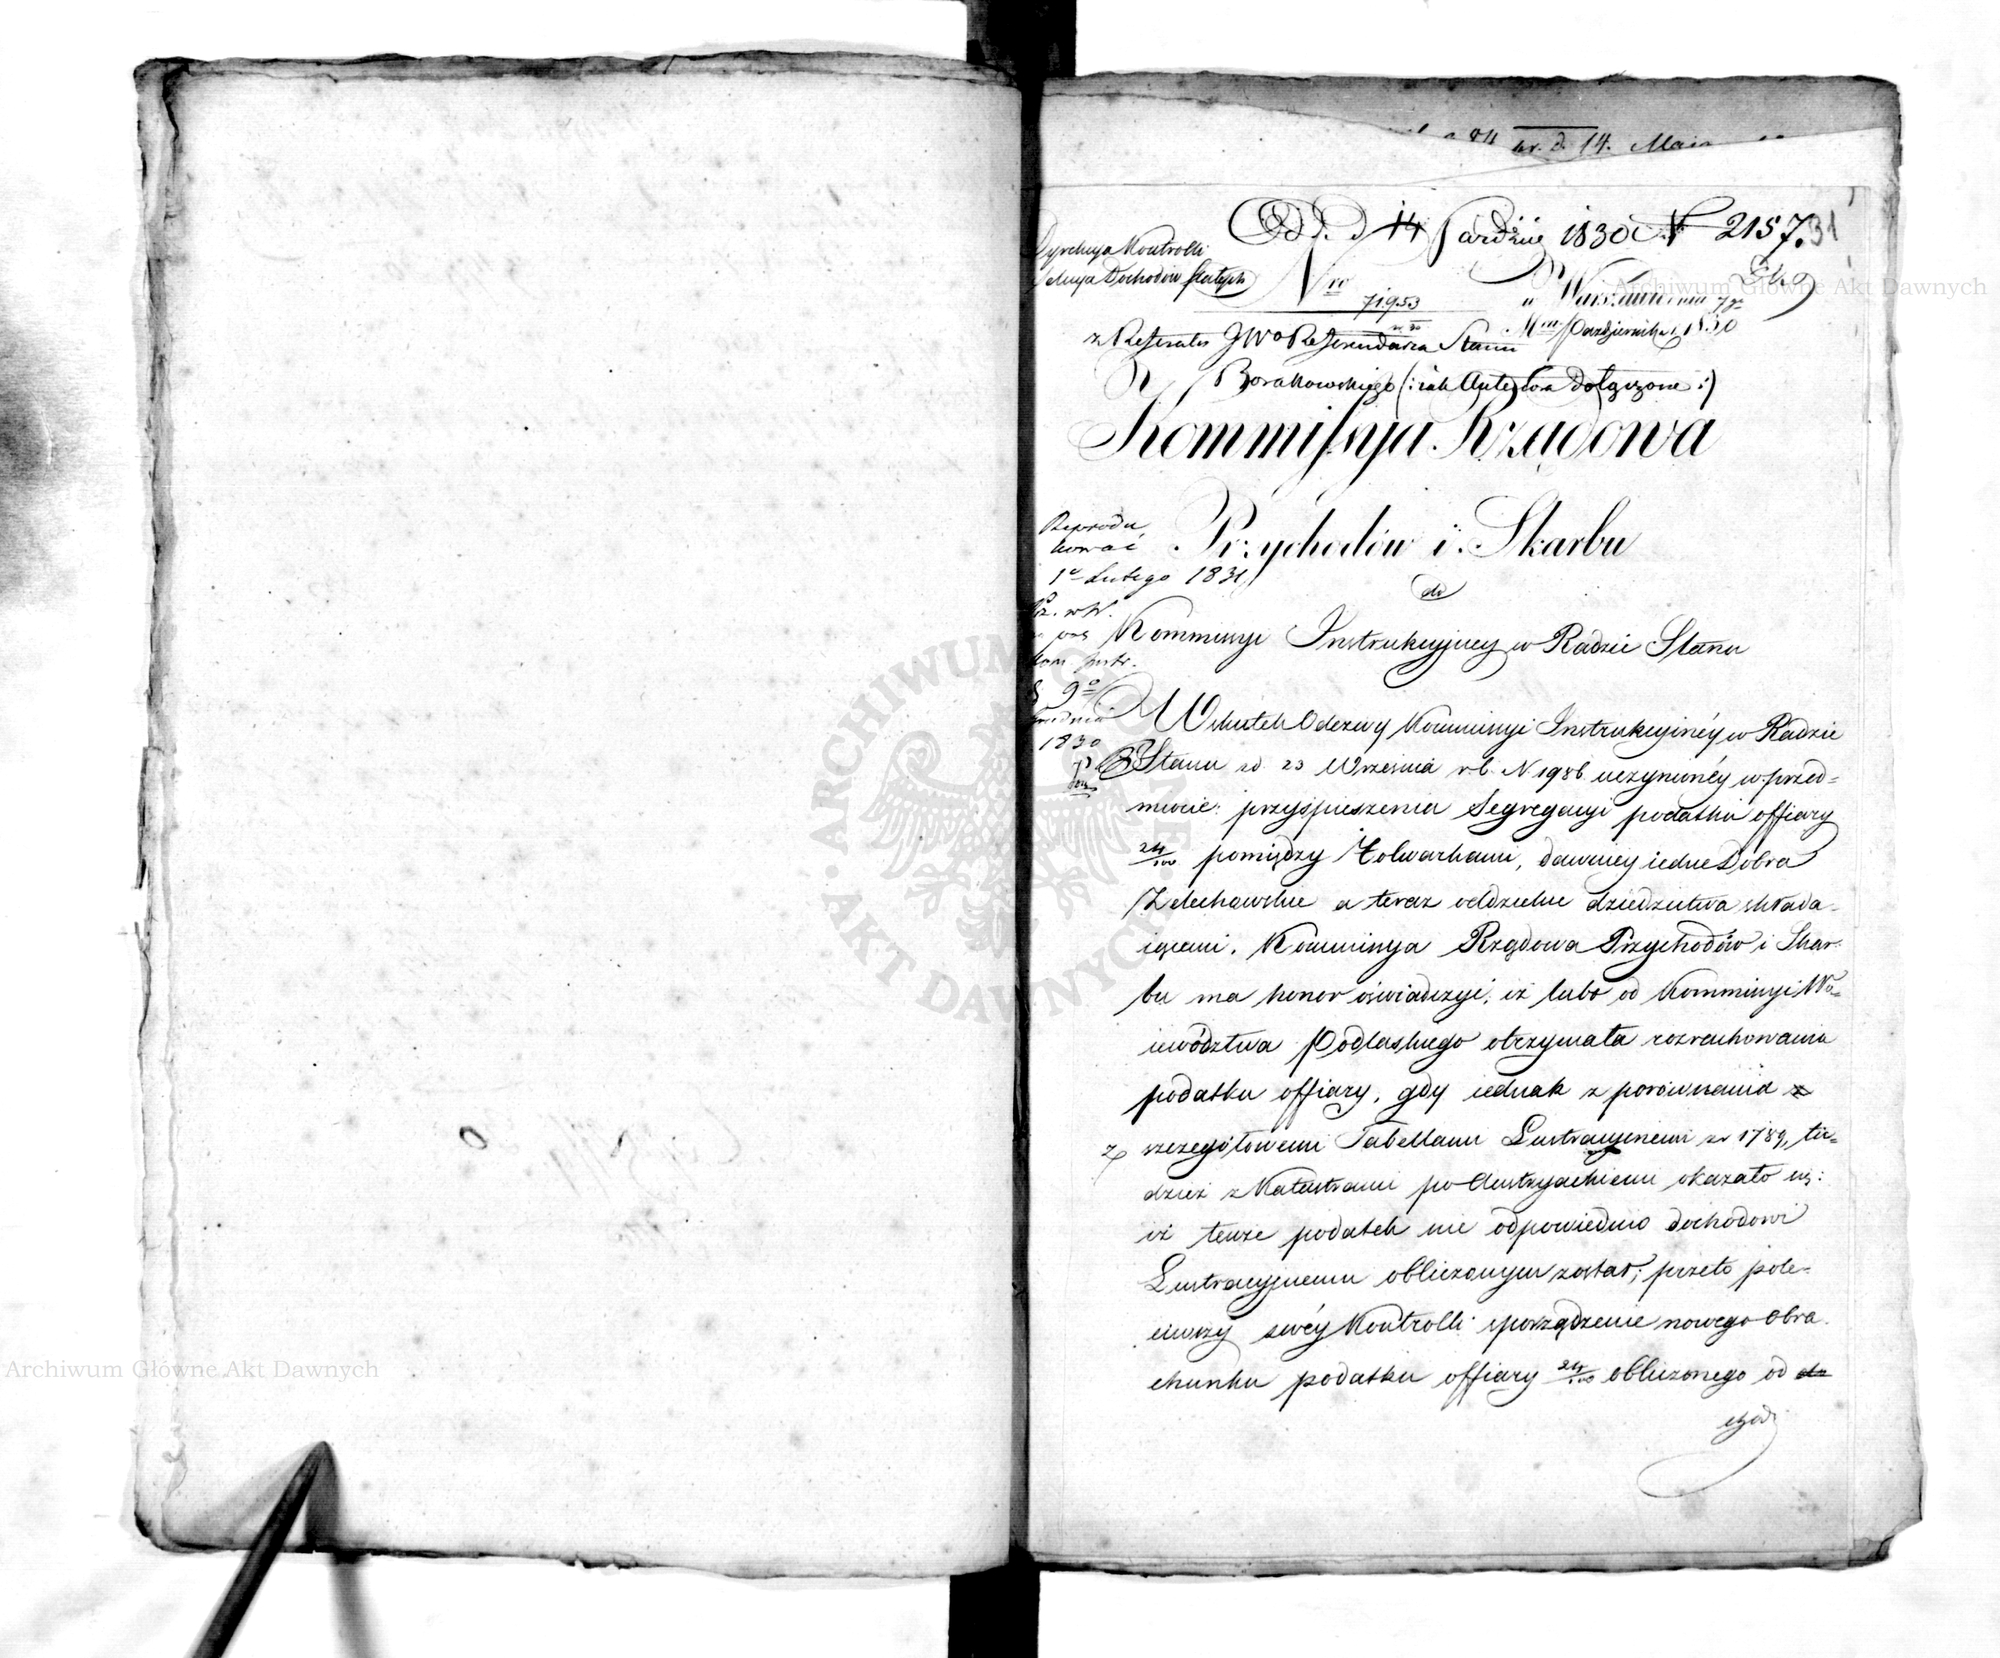 84 br. d. 14. Maia
Od. d. 14 Paździe 1830 N 2157.
31
Dyrekcya Kontrolli
Sekcya Dochodów Stałych
Nro
71953
w Warszawie dnia 7go
Mca Października 1830
z Referatu JWo Referendarza Stanu
Borakowskiego (: iak Antefora dołączone :)
Kommissyia Rządowa
Przychodów i Skarbu
do
Kommissyi Instrukcyjney w Radzie Stanu
Reprodu
kować
1o Lutego 1831
9o
Grudnia
1830
Wskutek Odezwy Kommissyi Instrukcyinéy w Radzie
Stanu zd. 23 Września r.b. N 1986 uczynionéy w przed=
miocie przyśpieszenia Segregacyi podatku offiary
24/100 pomiędzy Folwarkami, dawniey iedne Dobra
Żelechowskie a teraz oddzielne dziedzictwa składa-
iącemi, Kommissya Rządowa Przychodów i Skar-
bu ma honor oświadczyć, iż lubo od Kommissyi Wo=
iewództwa Podlaskiego otrzymała rozrachowania
podatku offiary, gdy iednak z porównania z
z szczegółowemi Tabellami Lustracyinemi zr 1789, tu=
dzież z Katastrami po Austryackiemi okazało się:
iż tenże podatek nie odpowiednio dochodowi
Lustracyjnemu obliczonym został; przeto pole=
ciwszy swéy Kontrolli sporządzenie nowego obra-
chunku podatku offiary 24/100 obliczonego od do
chodu
Archiwum Główne Akt Dawnych
Archiwum Główne Akt Dawnych
ARCHIWUM GŁÓWNE AKT DAWNYCH